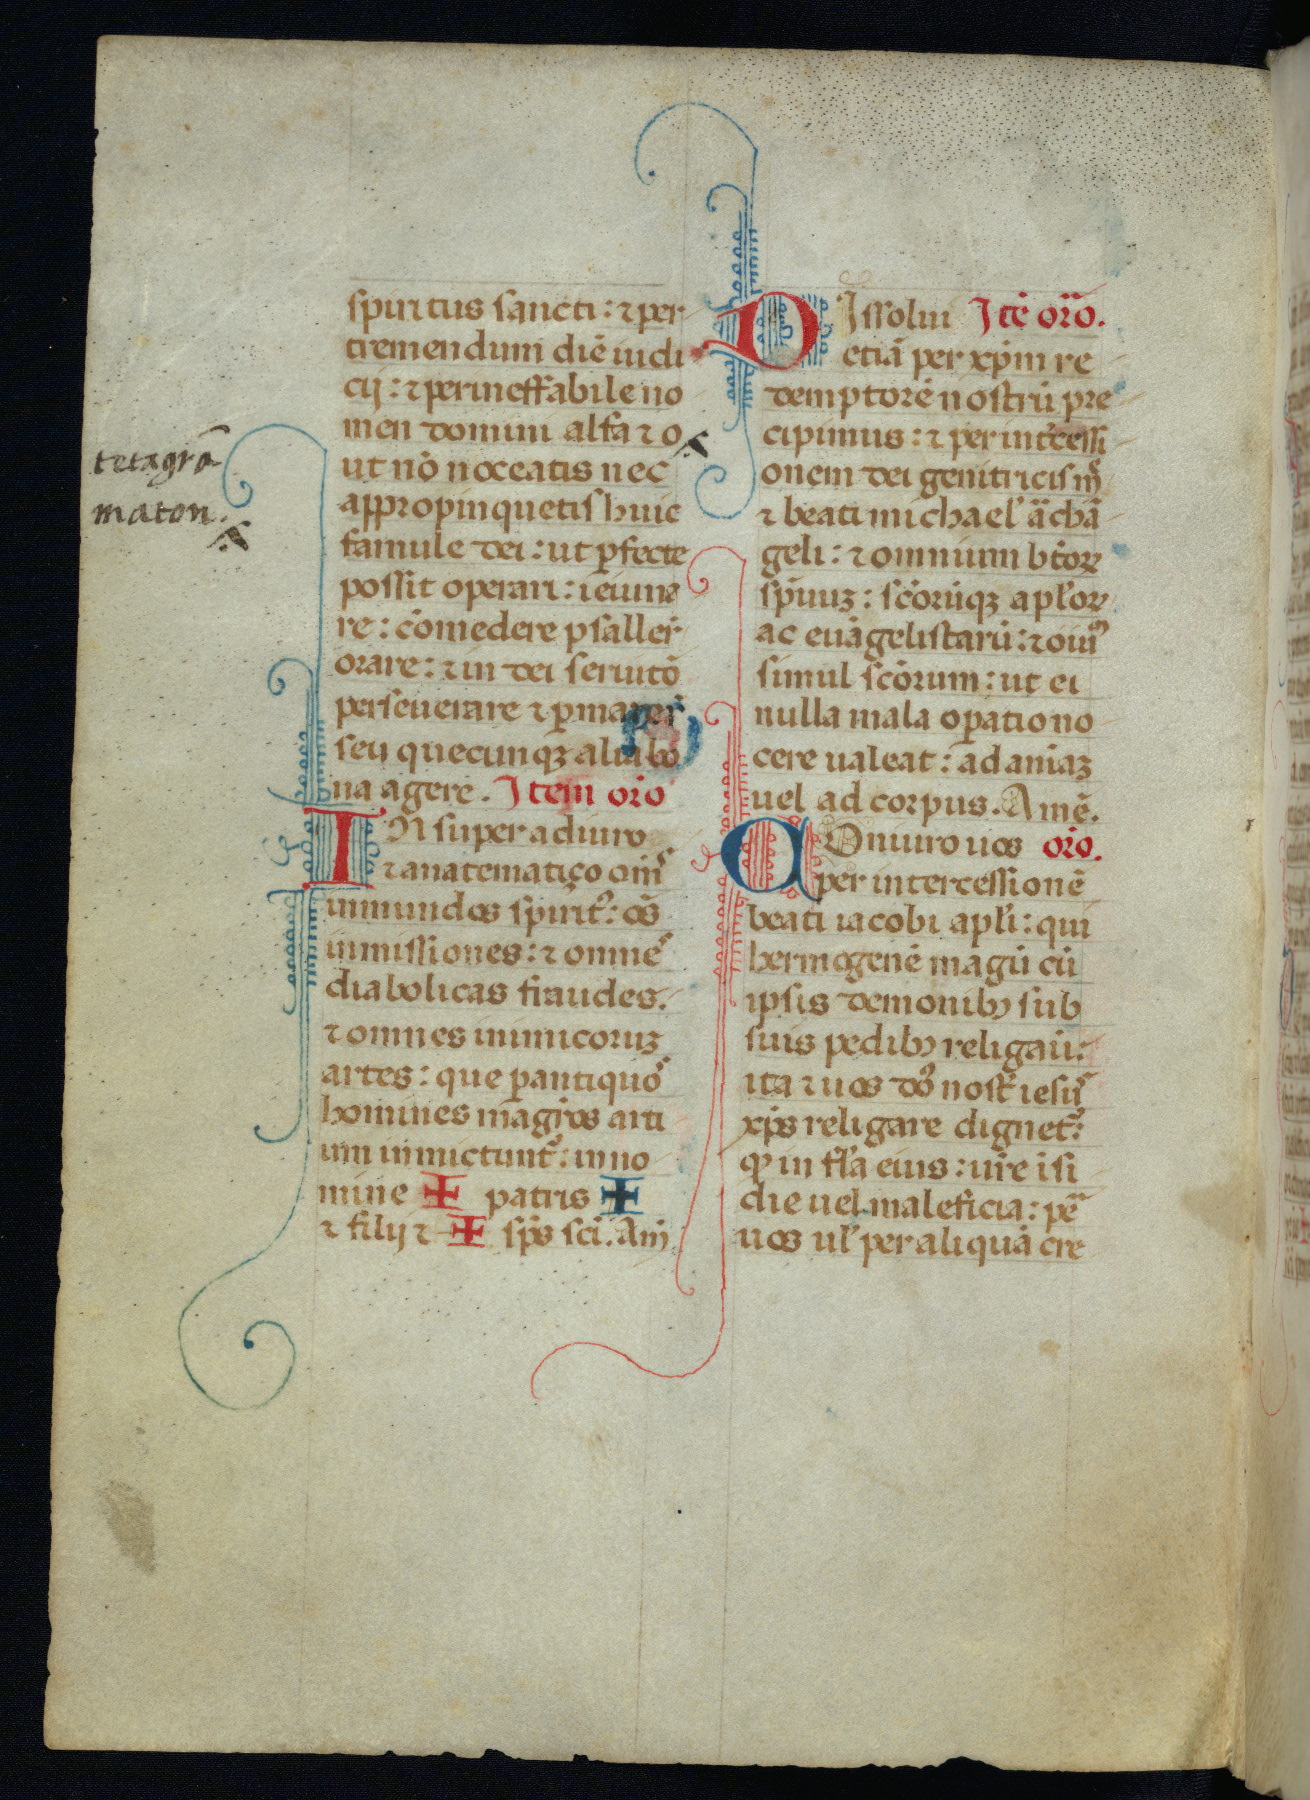 spiritus sancti: ⁊ per
tremendum diē iudi
cij: ⁊ per ineffabile no
men domini alfa ⁊ o
tetagrā
maton.
ut nō noceatis nec
appropinquetis huic
famule dei: ut ꝑfecte
possit operari: ieiuna
re: cōmedere psaller̄
orare: ⁊ in dei seruitō
perseuerare ⁊ ꝑmaner̄
seu quecunqꝫ alia bo
na agere. Item orō
IN super adiuro
⁊ anatematiço om̄s
inmundos spirit᷒: os̄
inmissiones: ⁊ omnes
diabolicas fraudes.
⁊ omnes inimicoruꝫ
artes: que ꝑ antiquos
homines māgros arti
um inmictunt᷒: in no
mine ✠ patris ✠
⁊ filij ⁊ ✠ sp̄s sc̄i. Am̄
DIssolui Itē orō.
etiā per xp̄m re
demptorē nostrū pre
cipimus: ⁊ per int̄cessi
onem dei genitricis m̄
⁊ beati michael' ācha
geli: ⁊ omnium bt̄oꝝ
sp̄uuꝫ: sc̄orūqꝫ apl'oꝝ
ac euāgelistarū: ⁊ oiu᷒
simul sc̄orum: ut ei
nulla mala oꝑatio no
cere ualeat: ad aniaꝫ
uel ad corpus. Amē.
COniuro uos orō.
per intercessionē
beati iacobi apl'i: qui
hermogenē magū cū
ipsis demonibꝫ sub
suis pedibꝫ religaū:
ita ⁊ uos dō nost̄ iesu᷒
xp̄s religare dignet᷒:
ꝙ in fl'a eius: ur̄e isi
die uel maleficia: pē
uos ul' per aliquā cre